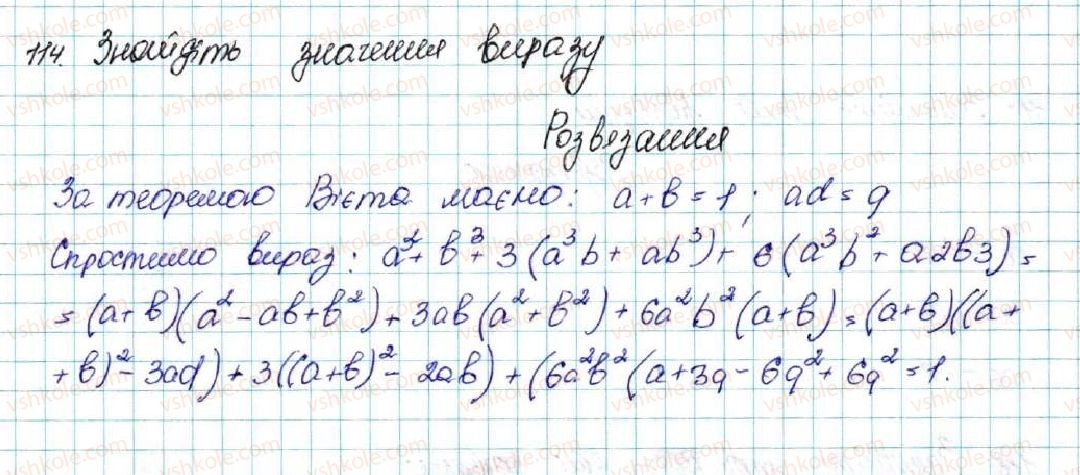 114. Знайдіть значення виразу
Розвязання
За теоремою Вієта маємо: a+b=1; ad=q
Спростимо вираз: a³+b³+3(a³b+ab³)+6(a³b²+a2b3)=
=(a+b)(a²-ab+b²)+3ab(a²+b²)+6a²b²(a+b)=(a+b)((a+
+b)²-3ad)+3((a+b)²-2ab)+(6a²b²(a+3q-6q²+6q²=1.